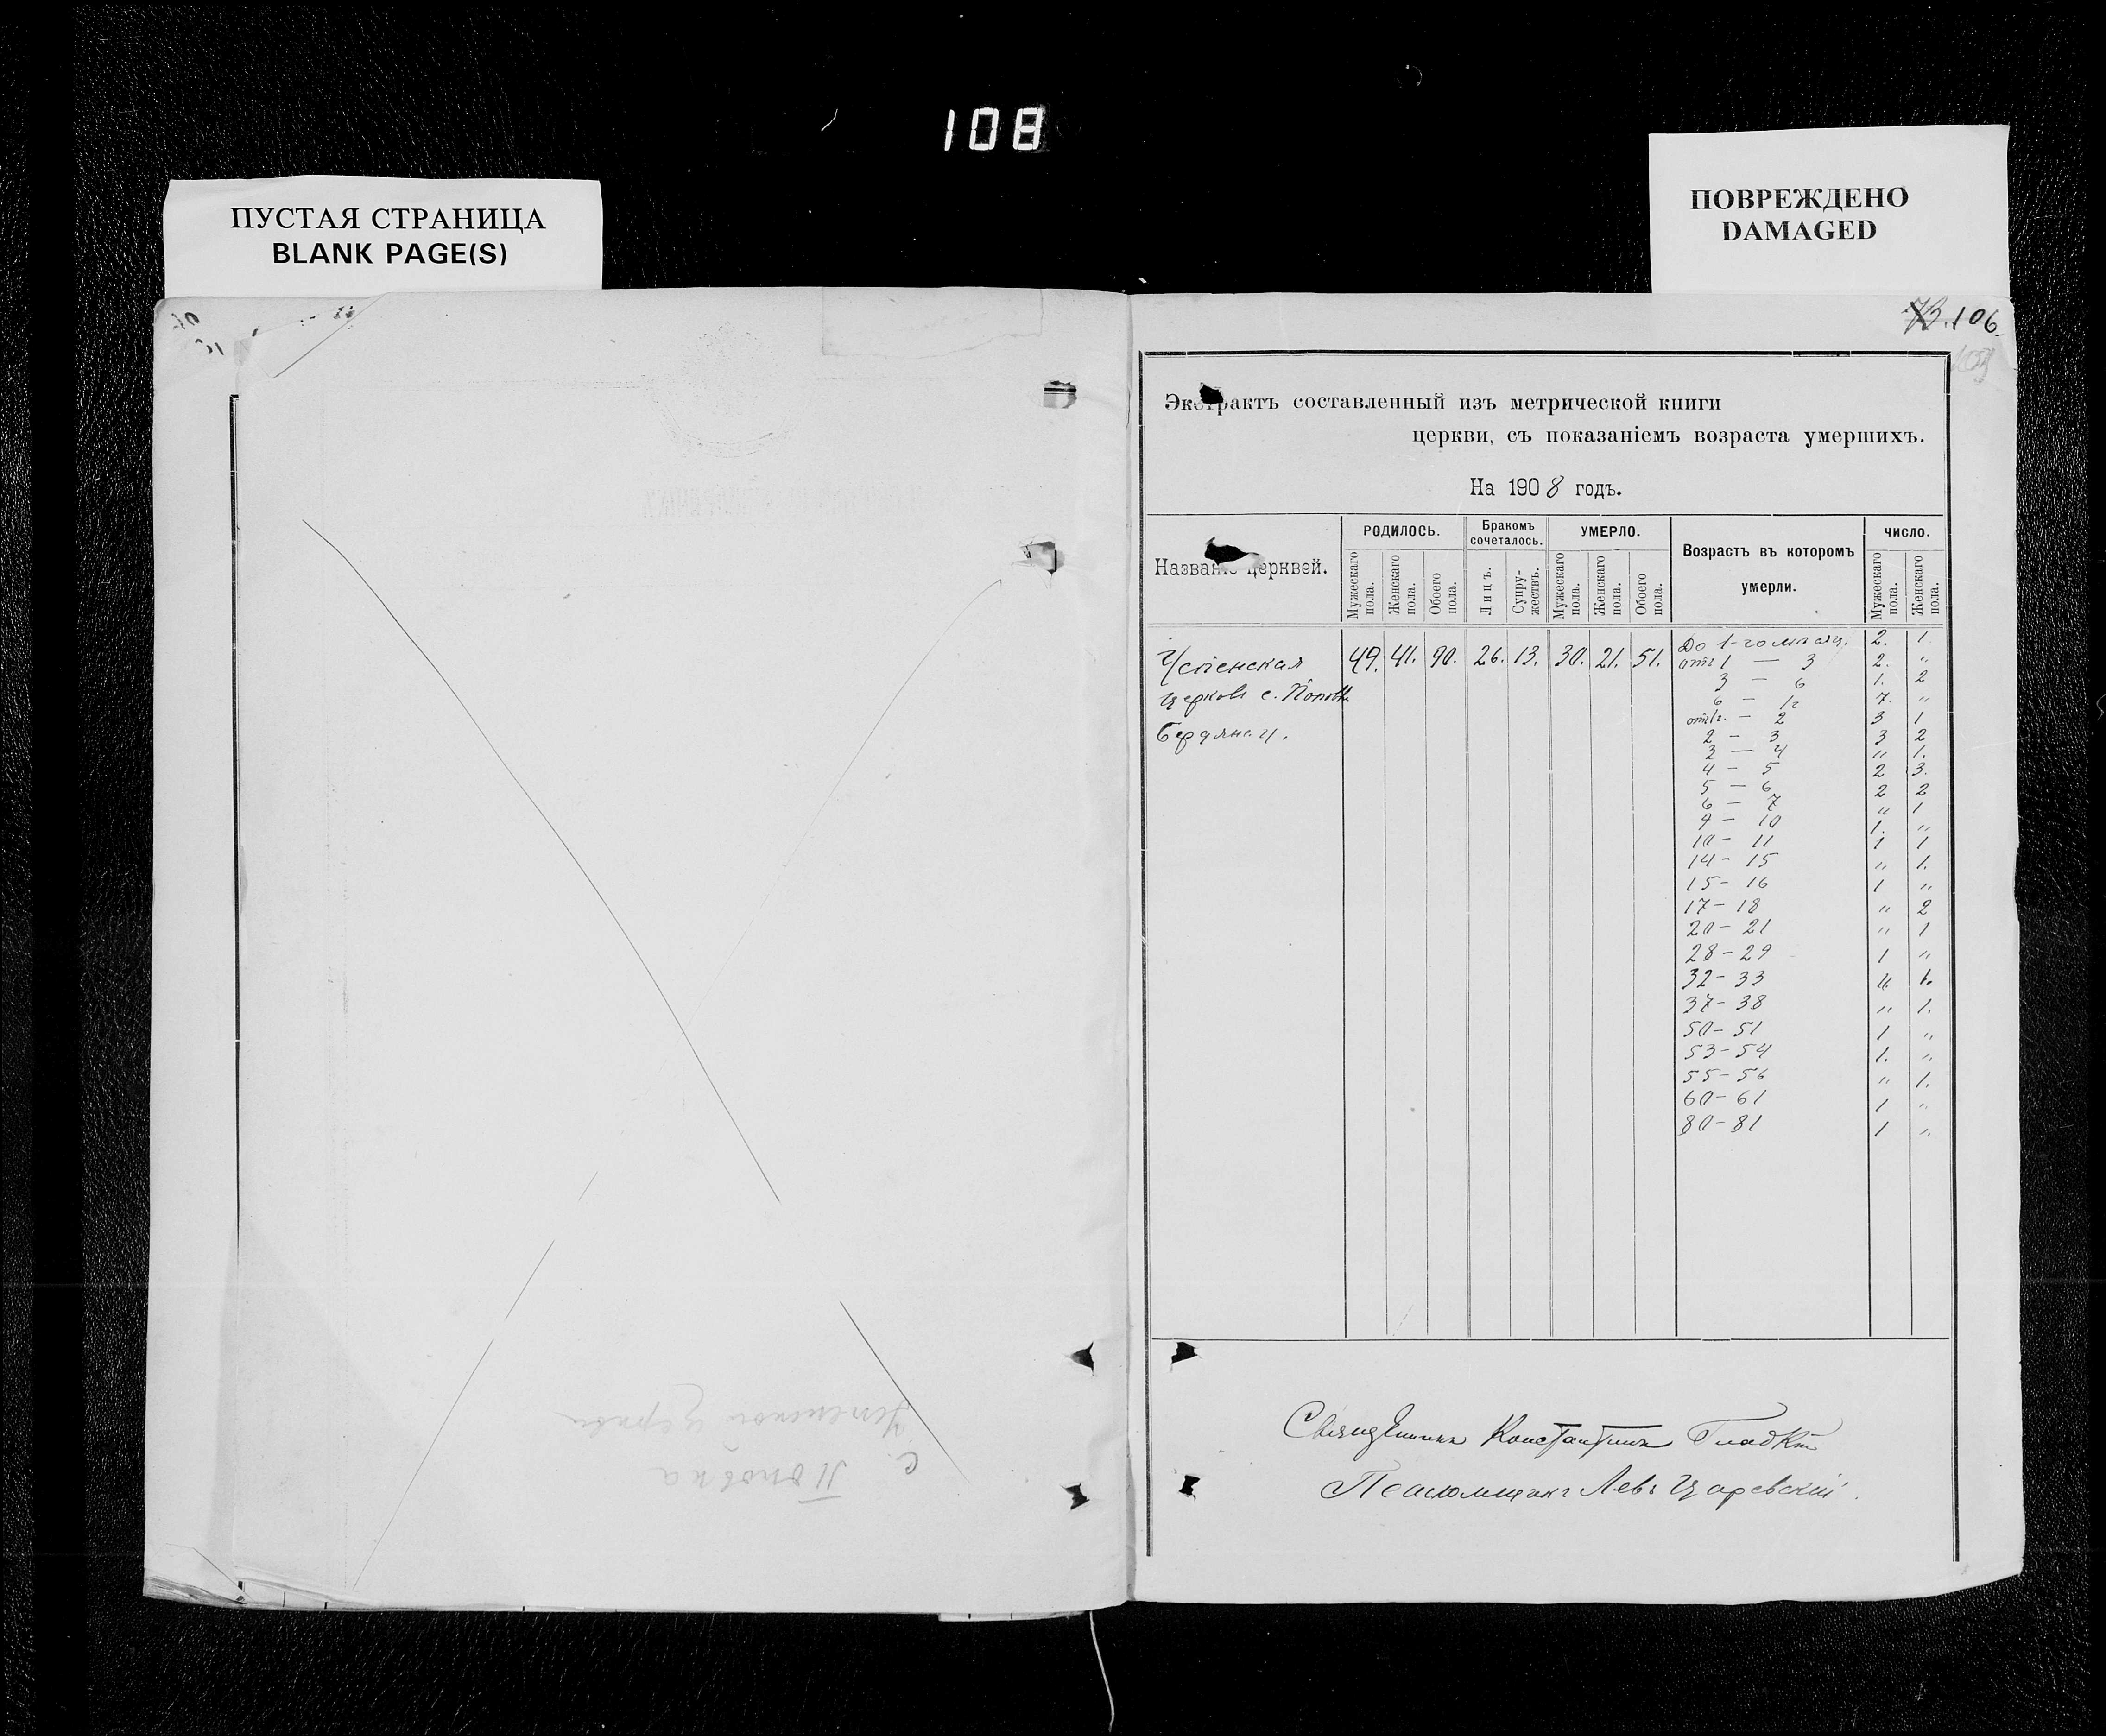 108
ПУСТАЯ СТРАНИЦА
BLANK PAGE(S)
ПОВРЕЖДЕНО
DAMAGED
73. 106.
Экстрактъ составленный изъ метрической книги
церкви, съ показаніемъ возраста умершихъ.
На 1908 годъ.
Названіе церквей.
РОДИЛОСЬ.
Мужескаго пола.
Женскаго пола.
Обоего пола.
Бракомъ сочеталось.
Лицъ.
Супружествъ.
УМЕРЛО.
Мужескаго пола.
Женскаго пола.
Обоего пола.
Возрастъ въ которомъ умерли.
ЧИСЛО.
Мужескаго пола.
Женскаго пола.
Успенская 49. 41. 90. 26. 13. 30. 21. 51.
церковь с. Поповки
Бердянс. у.
До 1-го мѣсяц. 2. 1.
отъ 1 — 3 2. "
3 — 6 1. 2
6 — 1г. 7. "
отъ 1г. — 2 3 1
2 — 3 3 2
3 — 4 " 1.
4 — 5 2 3.
5 — 6 2 2
6 — 7 " 1
9 — 10 1. "
10 — 11 1 1
14 — 15 " 1.
15 — 16 1 "
17 — 18 " 2
20 — 21 " 1
28 — 29 1 "
32 — 33 " 1.
37 — 38 " 1.
50 — 51 1 "
53 — 54 1. "
55 — 56 " 1.
60 — 61 1 "
80 — 81 1 "
Священникъ Константинъ
Псаломщикъ Левъ Царевскій.
с. Поповка
Успенской церкви